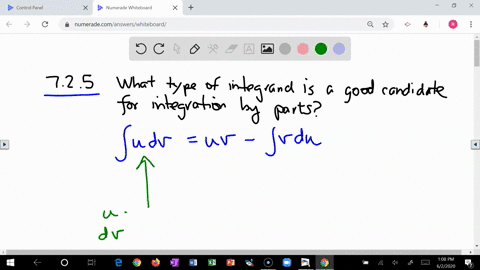 Control Panel
Numerade Whiteboard
numerade.com/answers/whiteboard/
7.2.5 What type of integrand is a good candidate
for integration by parts?
∫u dv = uv - ∫v du
u.
dv
1:08 PM
5/2/2020